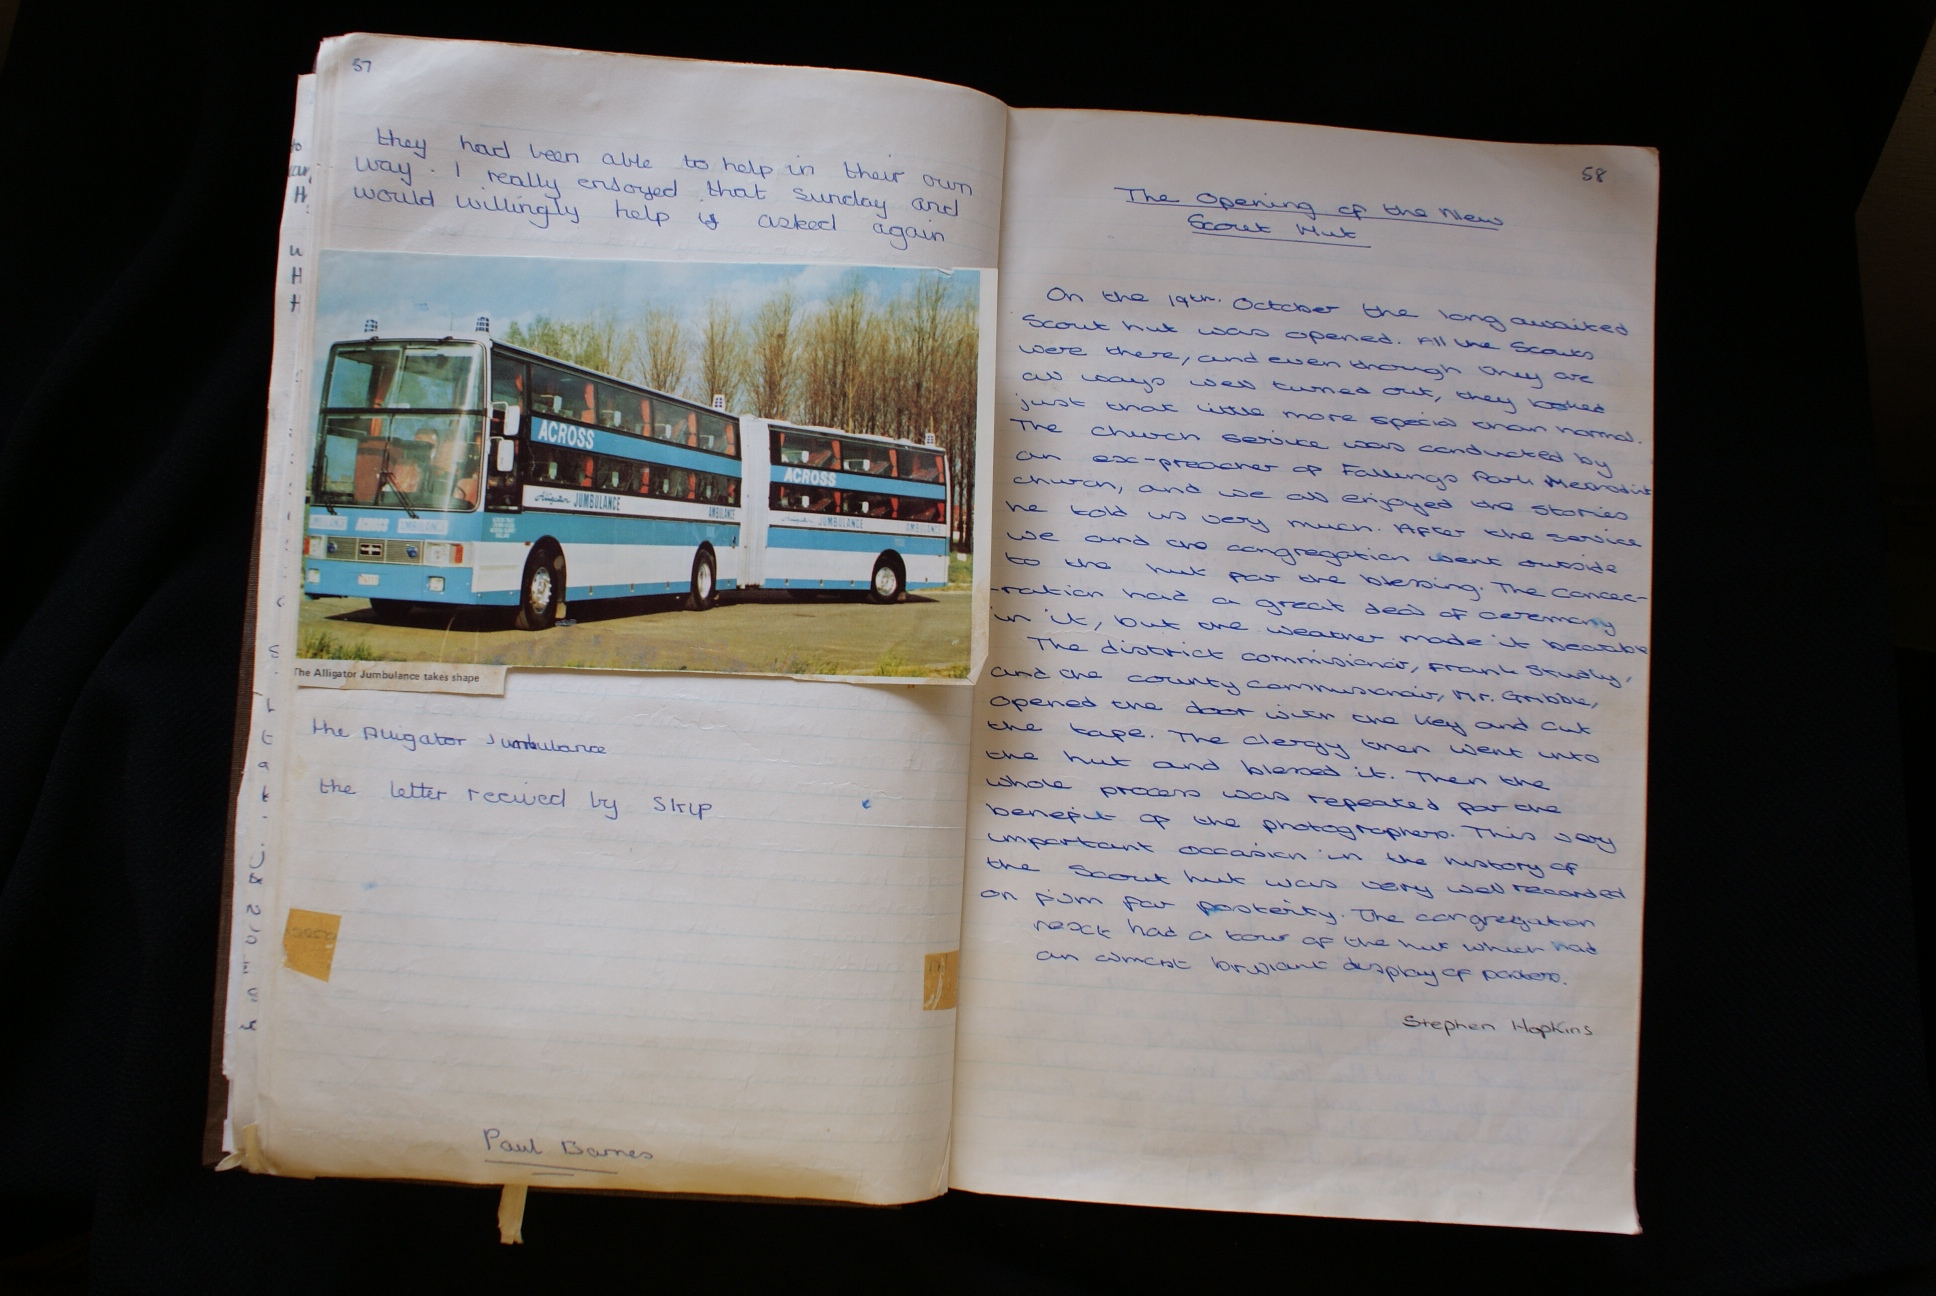 57
they had been able to help in their own
way. I really ensoyed that sunday and
would willingly help if asked again
ACROSS
ACROSS
Alligator JUMBULANCE
AMBULANCE
JUMBULANCE
AMBULANCE
AMBULANCE ACROSS AMBULANCE
The Alligator Jumbulance takes shape
the Alligator Jumbulance
the letter recived by Skip
Paul Barnes
58
The Opening of the New
Scout Hut
On the 19th. October the long awaited
Scout hut was opened. All the Scouts
were there, and even though they are
all ways well turned out, they looked
just that little more special than normal.
The church service was conducted by
an ex-preacher of Fallings Park Methodist
church, and we all enjoyed the stories
he told us very much. After the service
we and the congregation went outside
to the hut for the blessing. The consec-
-ration had a great deal of ceremony
in it, but the weather made it bearable
The district commisionair, Frank Study,
and the county commisionair, Mr. Gribble,
opened the door with the key and cut
the tape. The clergy then went into
the hut and blessed it. Then the
whole process was repeated for the
benefit of the photographers. This very
important occasion in the history of
the Scout hut was very well recorded
on film for posterity. The congregation
next had a tour of the hut which had
an almost brilliant display of posters.
Stephen Hopkins